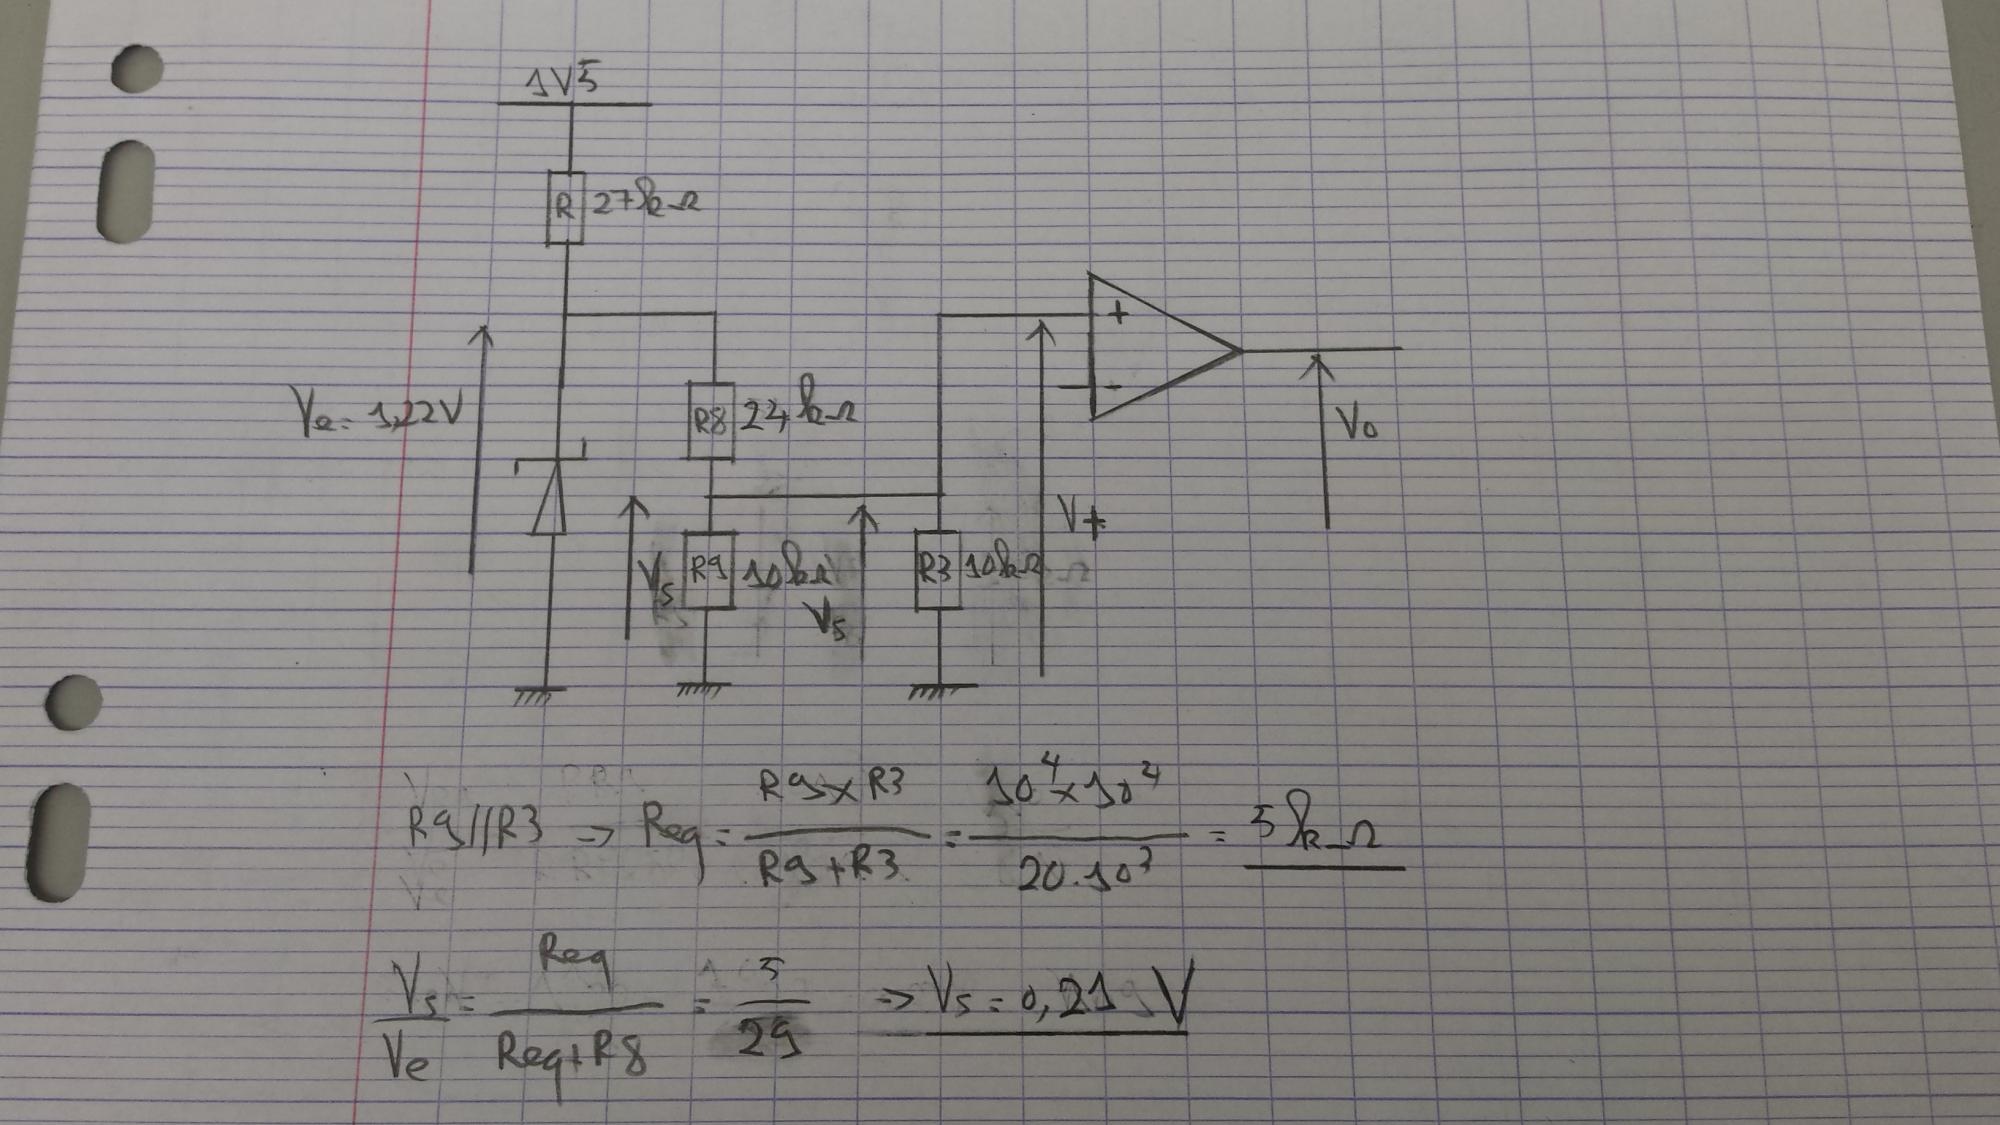 1V5
R 27kΩ
Ve = 1,22V
R8 24kΩ
+
-
Vo
V+
Vs R9 10kΩ
Vs
R3 10kΩ
R9//R3 → Req = R9xR3 / R9+R3 = 10^4 x 10^4 / 20.10^3 = 5kΩ
Vs/Ve = Req / Req+R8 = 5/29 => Vs = 0,21 V